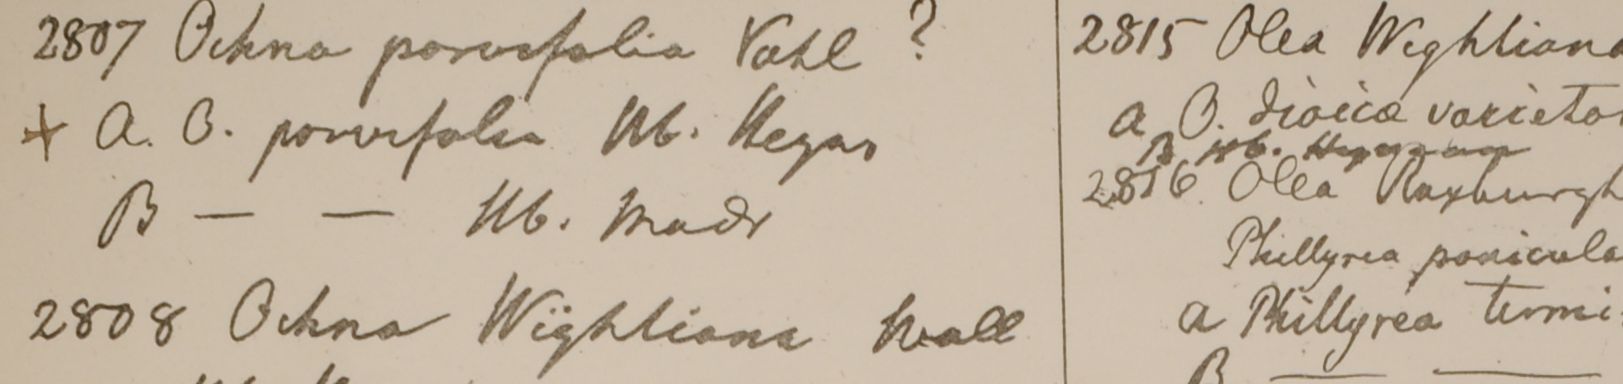 2807 Ochna parvifolia Vahl ?
+ a. O. parvifolia Hb. Heyne
B — — Hb. Madr
2808 Ochna Wightiana Wall
2815 Olea Wightiana
a O. dioica varieta
B Hb.
2816 Olea Roxburgh
Phillyrea panicula
a Phillyrea
B — —